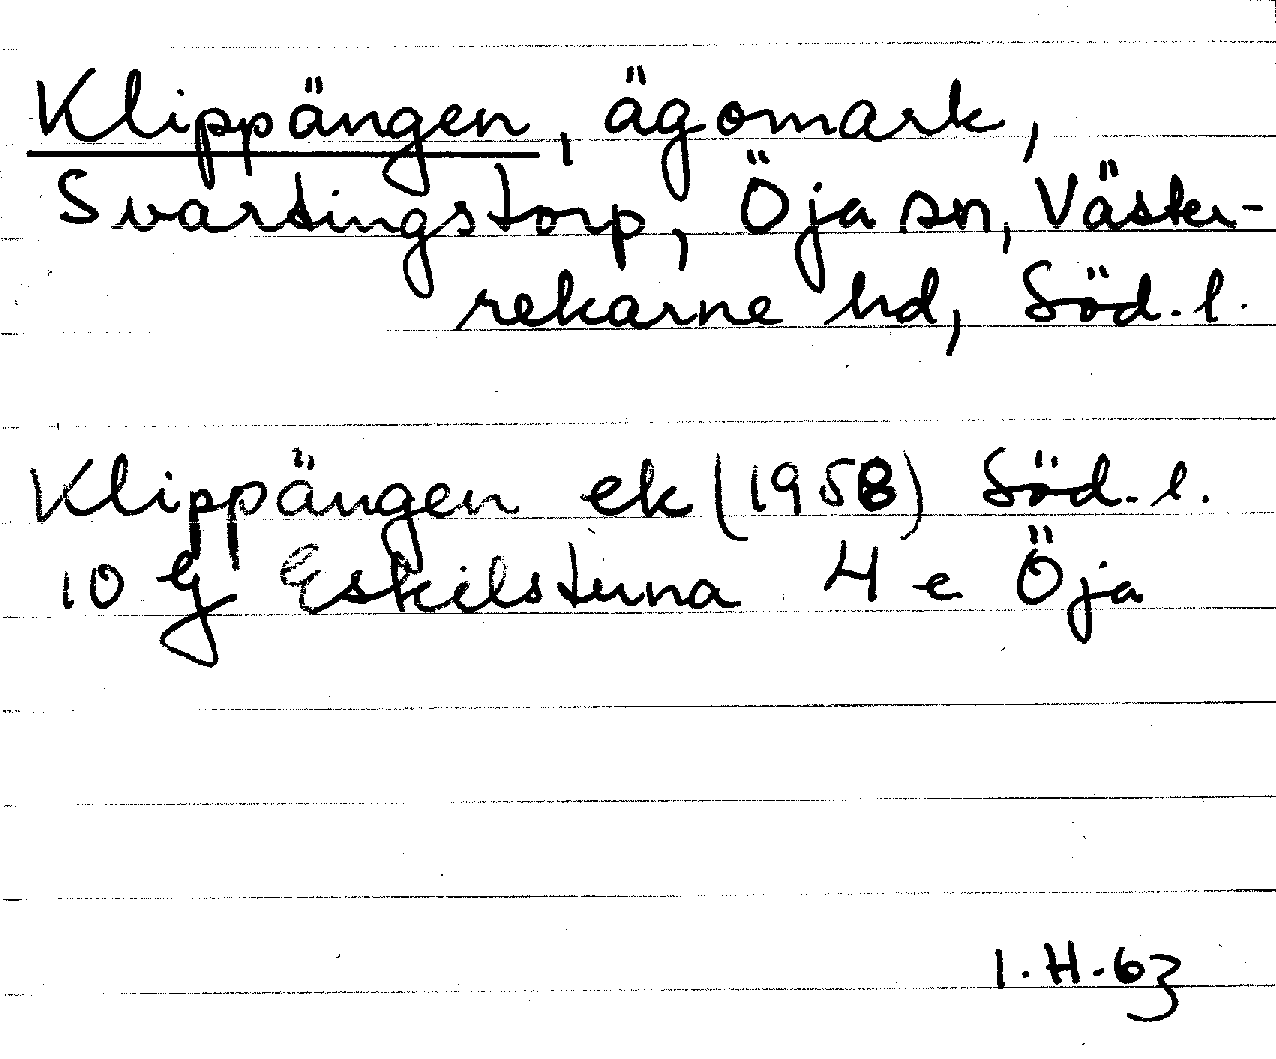 Klippängen, ägomark,
Svartingstorp, Öja sn, Väster-
rekarne hd, Söd. l.
Klippängen ek (1958) Söd. l.
10 G Eskilstuna 4 e Öja
I.H.63